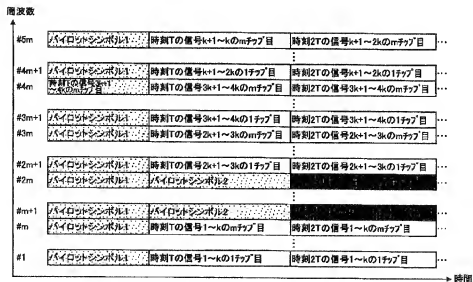 周波数
#5m パイロットシンボル1 時刻Tの信号k+1~kのmチップ目 時刻2Tの信号k+1~2kのmチップ目 …
#4m+1 パイロットシンボル1 時刻Tの信号k+1~2kの1チップ目 時刻2Tの信号k+1~2kの1チップ目 …
#4m 時刻Tの信号3k+1~4kのmチップ目 時刻Tの信号3k+1~4kのmチップ目 時刻2Tの信号3k+1~4kのmチップ目 …
#3m+1 パイロットシンボル1 時刻Tの信号3k+1~4kの1チップ目 時刻2Tの信号3k+1~4kの1チップ目 …
#3m パイロットシンボル1 時刻Tの信号2k+1~3kのmチップ目 時刻2Tの信号2k+1~3kのmチップ目 …
#2m+1 パイロットシンボル1 時刻Tの信号2k+1~3kの1チップ目 時刻2Tの信号2k+1~3kの1チップ目 …
#2m パイロットシンボル1 パイロットシンボル2 …
#m+1 パイロットシンボル1 パイロットシンボル2 …
#m パイロットシンボル1 時刻Tの信号1~kのmチップ目 時刻2Tの信号1~kのmチップ目 …
#1 パイロットシンボル1 時刻Tの信号1~kの1チップ目 時刻2Tの信号1~kの1チップ目 …
時間